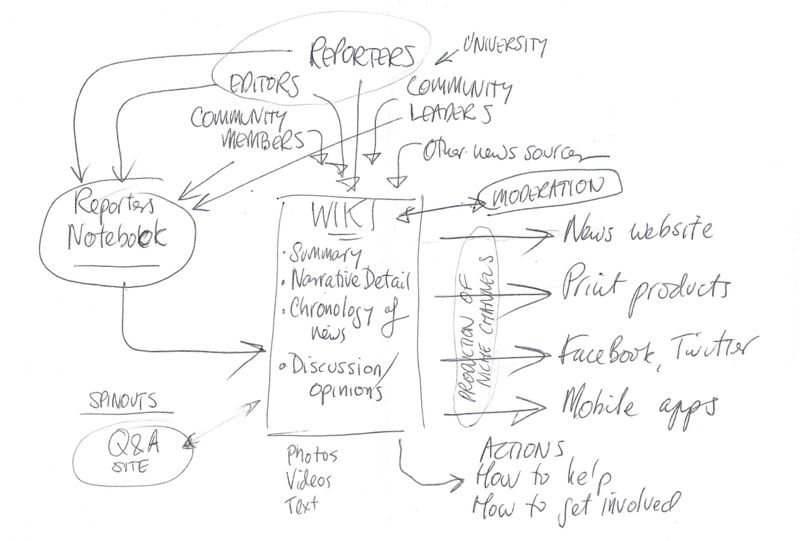 REPORTERS
UNIVERSITY
EDITORS
COMMUNITY
LEADERS
COMMUNITY
MEMBERS
Other news sources
MODERATION
Reporters
Notebook
WIKI
· Summary
· Narrative Detail
· Chronology of
news
· Discussion/
Opinions
PRODUCTION OF
NICHE CHANNELS
News website
Print products
FaceBook, Twitter
Mobile apps
SPINOUTS
Q&A
SITE
Photos
Videos
Text
ACTIONS
How to help
How to get involved